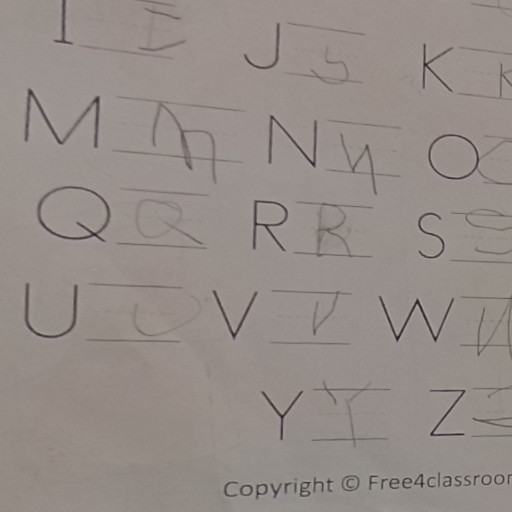 I I J J K K
M M N N O O
Q Q R R S S
U U V V W W
Y Y Z Z
Copyright © Free4classroo